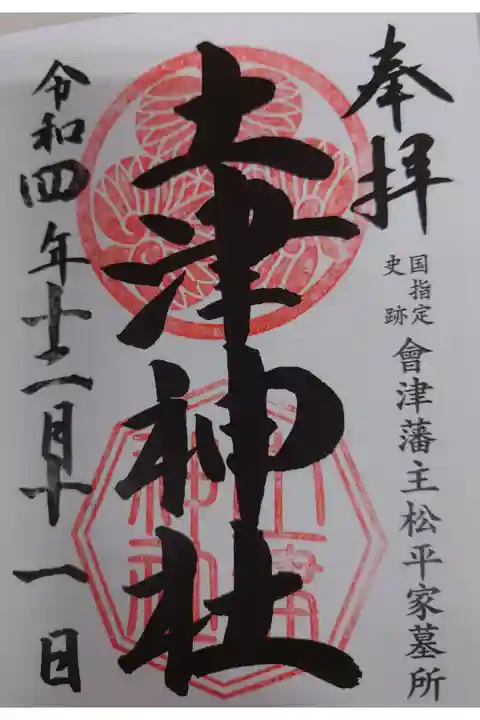 奉拝
国指定
史跡
會津藩主松平家墓所
土津神社
土津
神社
令和四年十二月十一日